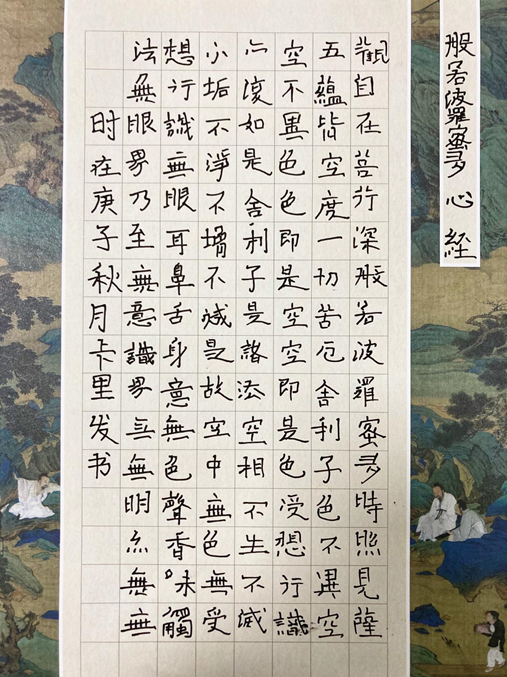 般若波羅蜜多心經
觀自在菩行深般若波羅蜜多時照見薩
五蘊皆空度一切苦厄舍利子色不異空
空不異色色即是空空即是色受想行識
亦復如是舍利子是諸法空相不生不滅
不垢不淨不增不減是故空中無色無受
想行識無眼耳鼻舌身意無色聲香味觸
法無眼界乃至無意識界無無明亦無無
时在庚子秋月卡里发书